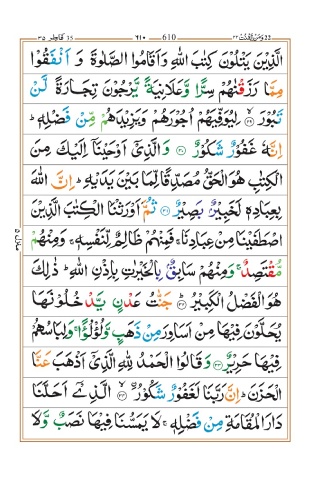 فاطر ٣٥ ٦١٠ 610 ومن يقنت ٢٢
الَّذِيْنَ يَتْلُوْنَ كِتٰبَ اللّٰهِ وَاَقَامُوا الصَّلٰوةَ وَ اَنْفَقُوْا
مِمَّا رَزَقْنٰهُمْ سِرًّا وَّعَلَانِيَةً يَّرْجُوْنَ تِجَارَةً لَّنْ
تَبُوْرَ ۙ﴿٢٩﴾ لِيُوَفِّيَهُمْ اُجُوْرَهُمْ وَيَزِيْدَهُمْ مِّنْ فَضْلِهٖ ؕ
اِنَّهٗ غَفُوْرٌ شَكُوْرٌ ﴿٣٠﴾ وَالَّذِيْۤ اَوْحَيْنَاۤ اِلَيْكَ مِنَ
الْكِتٰبِ هُوَ الْحَقُّ مُصَدِّقًا لِّمَا بَيْنَ يَدَيْهِ ؕ اِنَّ اللّٰهَ
بِعِبَادِهٖ لَخَبِيْرٌۢ بَصِيْرٌ ﴿٣١﴾ ثُمَّ اَوْرَثْنَا الْكِتٰبَ الَّذِيْنَ
اصْطَفَيْنَا مِنْ عِبَادِنَا ۚ فَمِنْهُمْ ظَالِمٌ لِّنَفْسِهٖ ۚ وَمِنْهُمْ
مُّقْتَصِدٌ ۚ وَمِنْهُمْ سَابِقٌۢ بِالْخَيْرٰتِ بِاِذْنِ اللّٰهِ ؕ ذٰلِكَ
هُوَ الْفَضْلُ الْكَبِيْرُ ؕ﴿٣٢﴾ جَنّٰتُ عَدْنٍ يَّدْخُلُوْنَهَا
يُحَلَّوْنَ فِيْهَا مِنْ اَسَاوِرَ مِنْ ذَهَبٍ وَّلُؤْلُؤًا ۚ وَلِبَاسُهُمْ
فِيْهَا حَرِيْرٌ ﴿٣٣﴾ وَقَالُوا الْحَمْدُ لِلّٰهِ الَّذِيْۤ اَذْهَبَ عَنَّا
الْحَزَنَ ؕ اِنَّ رَبَّنَا لَغَفُوْرٌ شَكُوْرٌ ۙ﴿٣٤﴾ الَّذِيْۤ اَحَلَّنَا
دَارَ الْمُقَامَةِ مِنْ فَضْلِهٖ ۚ لَا يَمَسُّنَا فِيْهَا نَصَبٌ وَّلَا
منزل ٥